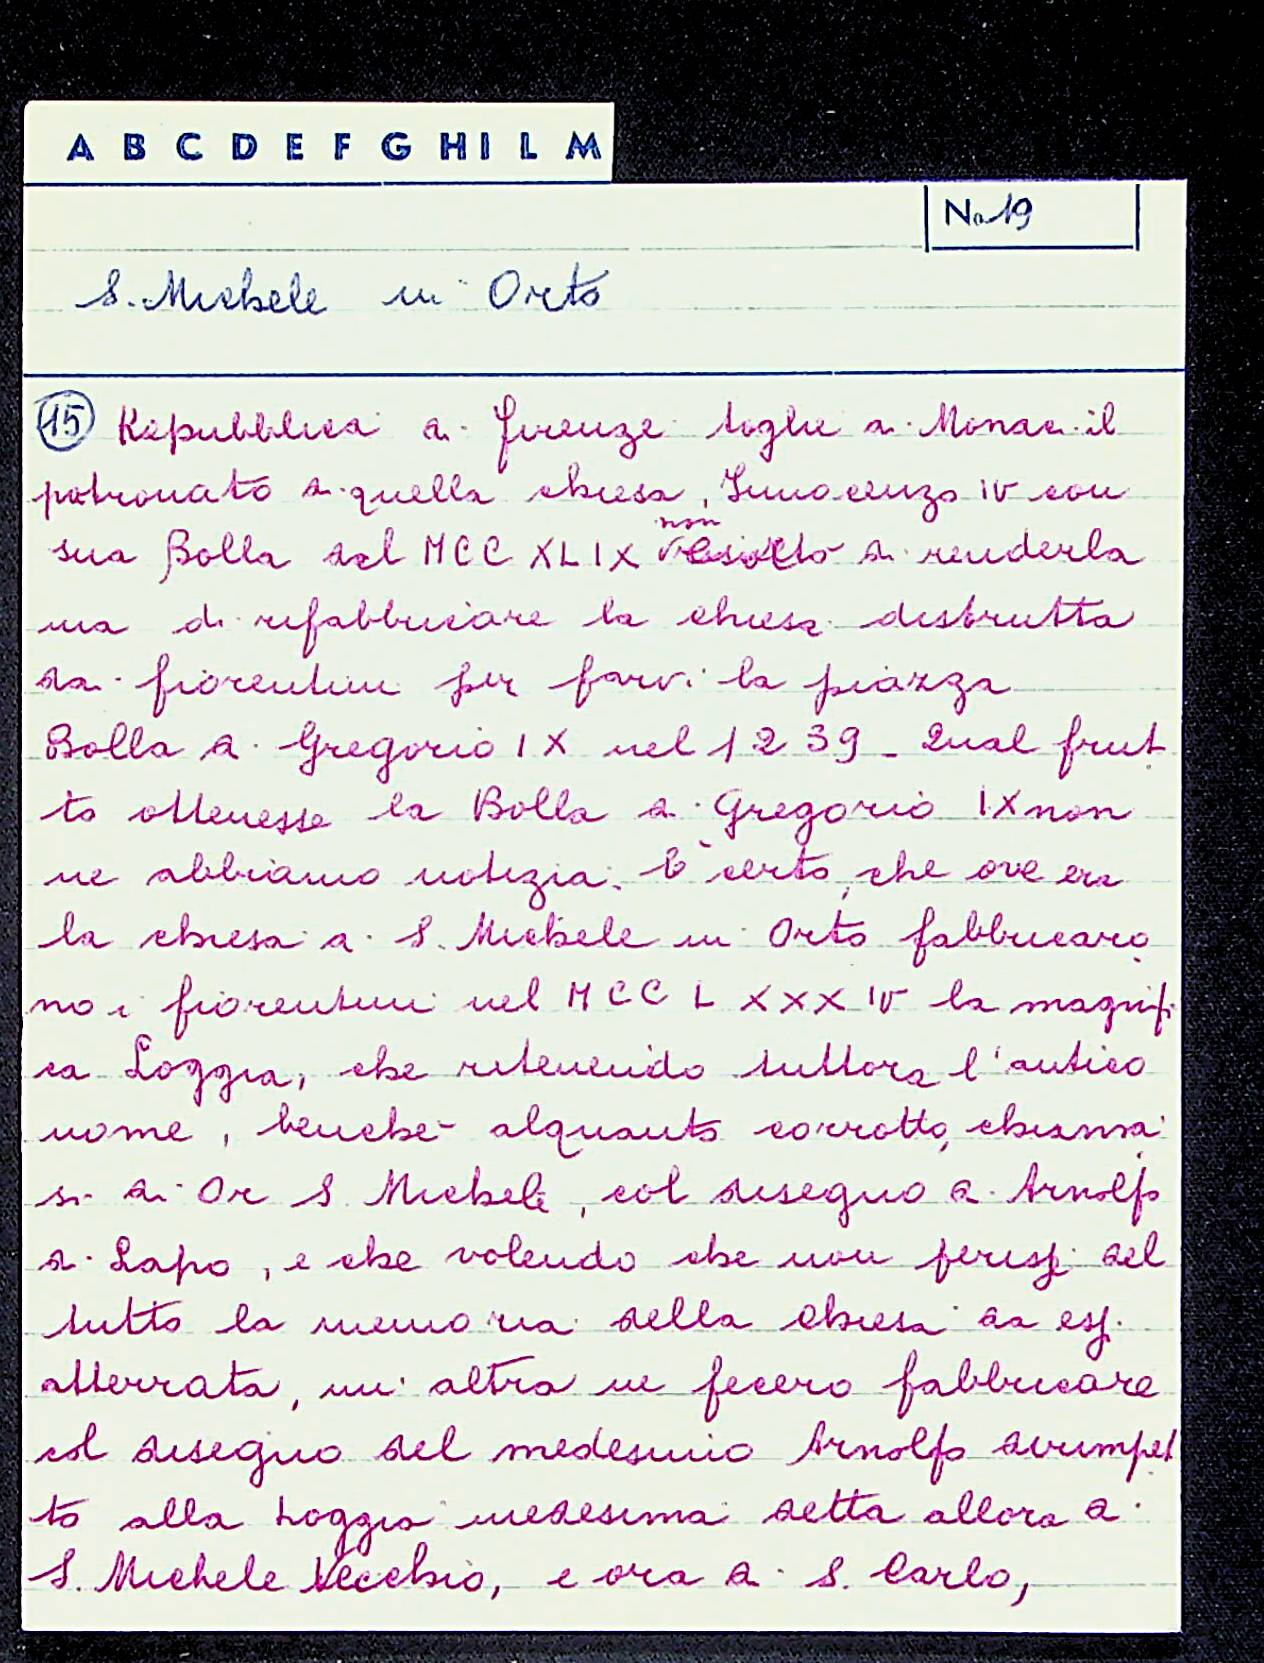 A B C D E F G H I L M
No 19
S. Michele in Orto
15 Repubblica di Firenze toglie ai Monaci il
patronato di quella chiesa, Innocenzo IV con
sua Bolla del MCCXLIX non di renderla
ma di rifabbricare la chiesa distrutta
dai fiorentini per farvi la piazza
Bolla di Gregorio IX nel 1239 - Qual frut
to ottenesse la Bolla di Gregorio IX non
ne abbiamo notizia. È certo, che ove era
la chiesa di S. Michele in Orto fabbricaro
no i fiorentini nel MCCLXXXIV la magnifi
ca Loggia, che ritenendo tuttora l'antico
nome, benchè alquanto corrotto, chiama
si di Or S. Michele, col disegno di Arnolfo
di Lapo, e che volendo che non periss. del
tutto la memoria della chiesa da ess.
atterrata, un'altra ne fecero fabbricare
col disegno del medesimo Arnolfo dirimpet
to alla Loggia medesima detta allora di
S. Michele Vecchio, e ora di S. Carlo,